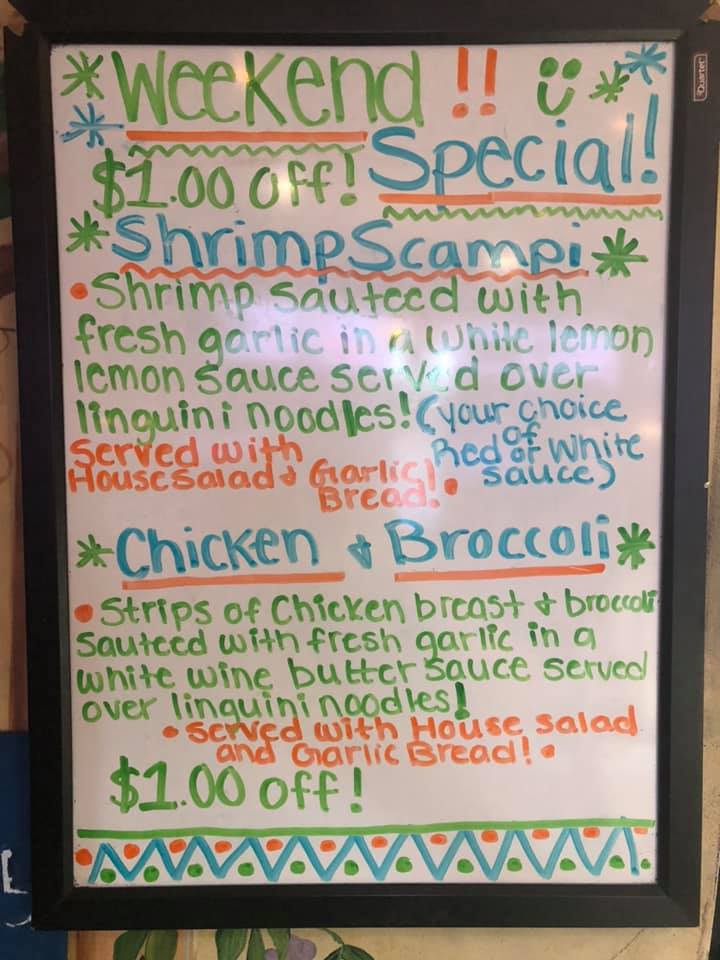 Weekend!!
Special!
$1.00 off!
Shrimp Scampi
• Shrimp sauteed with
fresh garlic in a white lemon
lemon sauce served over
linguini noodles! (your choice
of
Red or White
sauce)
Served with
House salad & Garlic
Bread! •
Chicken & Broccoli
• Strips of Chicken breast & broccoli
sauteed with fresh garlic in a
white wine butter sauce served
over linguini noodles!
• Served with House salad
and Garlic Bread! •
$1.00 off!
Quartet